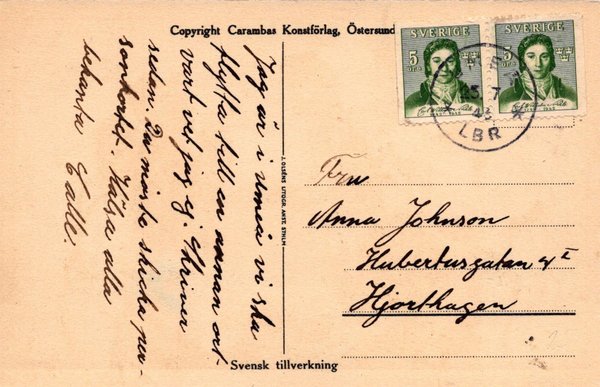 Copyright Carambas Konstförlag, Östersund
SVERIGE
SVERIGE
5
ÖRE
5
ÖRE
25. 7
43
LBR
Jag är i Umeå vi ska
flytta till en annan ort
vart vet jag ej. Skriver
sedan. Du måste skicka per-
sonkortet. Hälsa alla
bekanta Calle.
J. OLSÉNS LITOGR. ANST. STHLM
Fru
Anna Johnson
Hubertusgatan 4 I
Hjorthagen
Svensk tillverkning